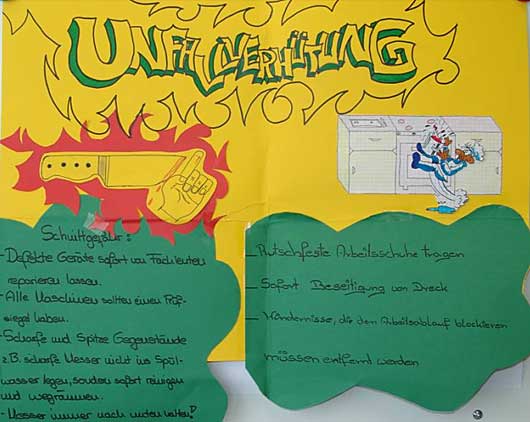 UNFALLVERHÜTUNG
Schnittgefahr:
- Defekte Geräte sofort von Fachleuten
reparieren lassen.
- Alle Maschinen sollten einen Prüf-
siegel haben.
- Scharfe und Spitze Gegenstände
z.B. scharfe Messer nicht ins Spül-
wasser legen, sondern sofort reinigen
und wegräumen.
- Messer immer nach unten halten!
- Rutschfeste Arbeitsschuhe tragen
- Sofort Beseitigung von Dreck
- Hindernisse, die den Arbeitsablauf blockieren
müssen entfernt werden